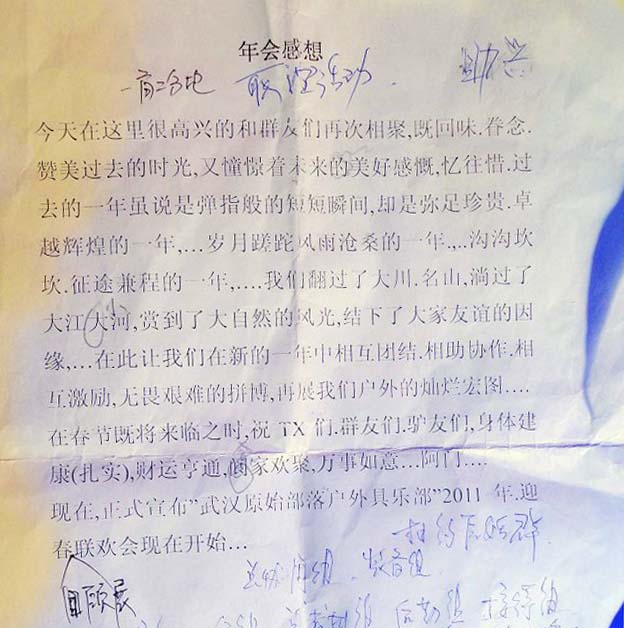 年会感想
活动. 助兴
今天在这里很高兴的和群友们再次相聚,既回味.眷念.
赞美过去的时光,又憧憬着未来的美好感慨,忆往惜.过
去的一年虽说是弹指般的短短瞬间,却是弥足珍贵.卓
越辉煌的一年,…岁月蹉跎风雨沧桑的一年.,..沟沟坎
坎.征途兼程的一年,….我们翻过了大川.名山,淌过了
大江大河,赏到了大自然的风光,结下了大家友谊的因
缘,…在此让我们在新的一年中相互团结.相助协作.相
互激励,无畏艰难的拼博,再展我们户外的灿烂宏图….
在春节既将来临之时,祝 TX 们.群友们.驴友们,身体建
康(扎实),财运亨通,阖家欢聚,万事如意…阿门….
现在,正式宣布"武汉原始部落户外具乐部"2011 年.迎
春联欢会现在开始…
回顾 后勤组 接待组